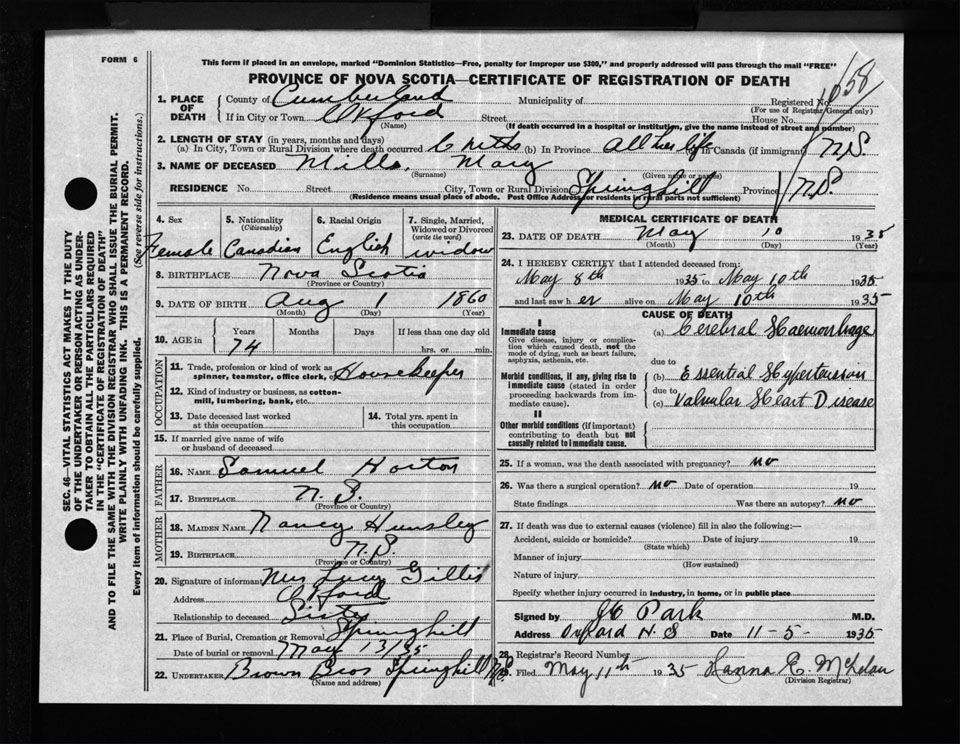 FORM 6
This form if placed in an envelope, marked "Dominion Statistics—Free, penalty for improper use $300," and properly addressed will pass through the mail "FREE"
PROVINCE OF NOVA SCOTIA—CERTIFICATE OF REGISTRATION OF DEATH
1. PLACE OF DEATH { County of Cumberland Municipality of Registered No. 1058
(For use of Registrar General only)
If in City or Town Oxford Street House No.
(Name) (If death occurred in a hospital or institution, give the name instead of street and number)
2. LENGTH OF STAY (in years, months and days)
(a) In City, Town or Rural Division where death occurred 6 mths (b) In Province All her life (c) In Canada (if immigrant) N.S.
3. NAME OF DECEASED Mills, Mary
(Surname) (Given name or names)
RESIDENCE No. Street City, Town or Rural Division Springhill Province N.S.
(Residence means usual place of abode. Post Office Address for residents in rural parts not sufficient)
4. Sex Female
5. Nationality (Citizenship) Canadian
6. Racial Origin English
7. Single, Married, Widowed or Divorced (write the word) widow
8. BIRTHPLACE Nova Scotia
(Province or Country)
9. DATE OF BIRTH Aug 1 1860
(Month) (Day) (Year)
10. AGE in { Years 74 Months Days If less than one day old
hrs. or min.
OCCUPATION
11. Trade, profession or kind of work as spinner, teamster, office clerk, etc. Housekeeper
12. Kind of industry or business, as cotton-mill, lumbering, bank, etc.
13. Date deceased last worked at this occupation
14. Total yrs. spent in this occupation
15. If married give name of wife or husband of deceased
FATHER
16. NAME Samuel Horton
17. BIRTHPLACE N.S.
(Province or Country)
MOTHER
18. MAIDEN NAME Nancy Hunsley
19. BIRTHPLACE N.S.
(Province or Country)
20. Signature of informant Mrs Lucy Gillis
Address Oxford
Relationship to deceased Sister
21. Place of Burial, Cremation or Removal Springhill
Date of burial or removal May 13/35
22. UNDERTAKER Brown Bros Springhill N.S.
(Name and address)
MEDICAL CERTIFICATE OF DEATH
23. DATE OF DEATH May 10 1935
(Month) (Day) (Year)
24. I HEREBY CERTIFY that I attended deceased from:
May 8th 1935 to May 10th 1935
and last saw her alive on May 10th 1935
CAUSE OF DEATH
I
Immediate cause (a) Cerebral Haemorrhage
Give disease, injury or complication which caused death, not the mode of dying, such as heart failure, asphyxia, asthenia, etc.
due to
Morbid conditions, if any, giving rise to immediate cause (stated in order proceeding backwards from immediate cause).
(b) Essential Hypertension
due to
(c) Valvular Heart Disease
II
Other morbid conditions (if important) contributing to death but not causally related to immediate cause.
25. If a woman, was the death associated with pregnancy? no
26. Was there a surgical operation? no Date of operation 19
State findings Was there an autopsy? no
27. If death was due to external causes (violence) fill in also the following:—
Accident, suicide or homicide? Date of injury 19
(State which)
Manner of injury
(How sustained)
Nature of injury
Specify whether injury occurred in industry, in home, or in public place
Signed by Park M.D.
Address Oxford N.S Date 11-5-1935
28. Registrar's Record Number
29. Filed May 11th 1935 Hanna E.
(Division Registrar)
SEC. 46—VITAL STATISTICS ACT MAKES IT THE DUTY
OF THE UNDERTAKER OR PERSON ACTING AS UNDER-
TAKER TO OBTAIN ALL THE PARTICULARS REQUIRED
IN THE "CERTIFICATE OF REGISTRATION OF DEATH"
AND TO FILE THE SAME WITH THE DIVISION REGISTRAR WHO SHALL ISSUE THE BURIAL PERMIT.
WRITE PLAINLY WITH UNFADING INK. THIS IS A PERMANENT RECORD.
Every item of information should be carefully supplied. (See reverse side for instructions.)